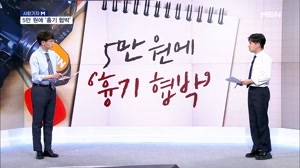 사회기자 M
5만 원에 '흉기 협박'
MBN
5만 원에
'흉기 협박'